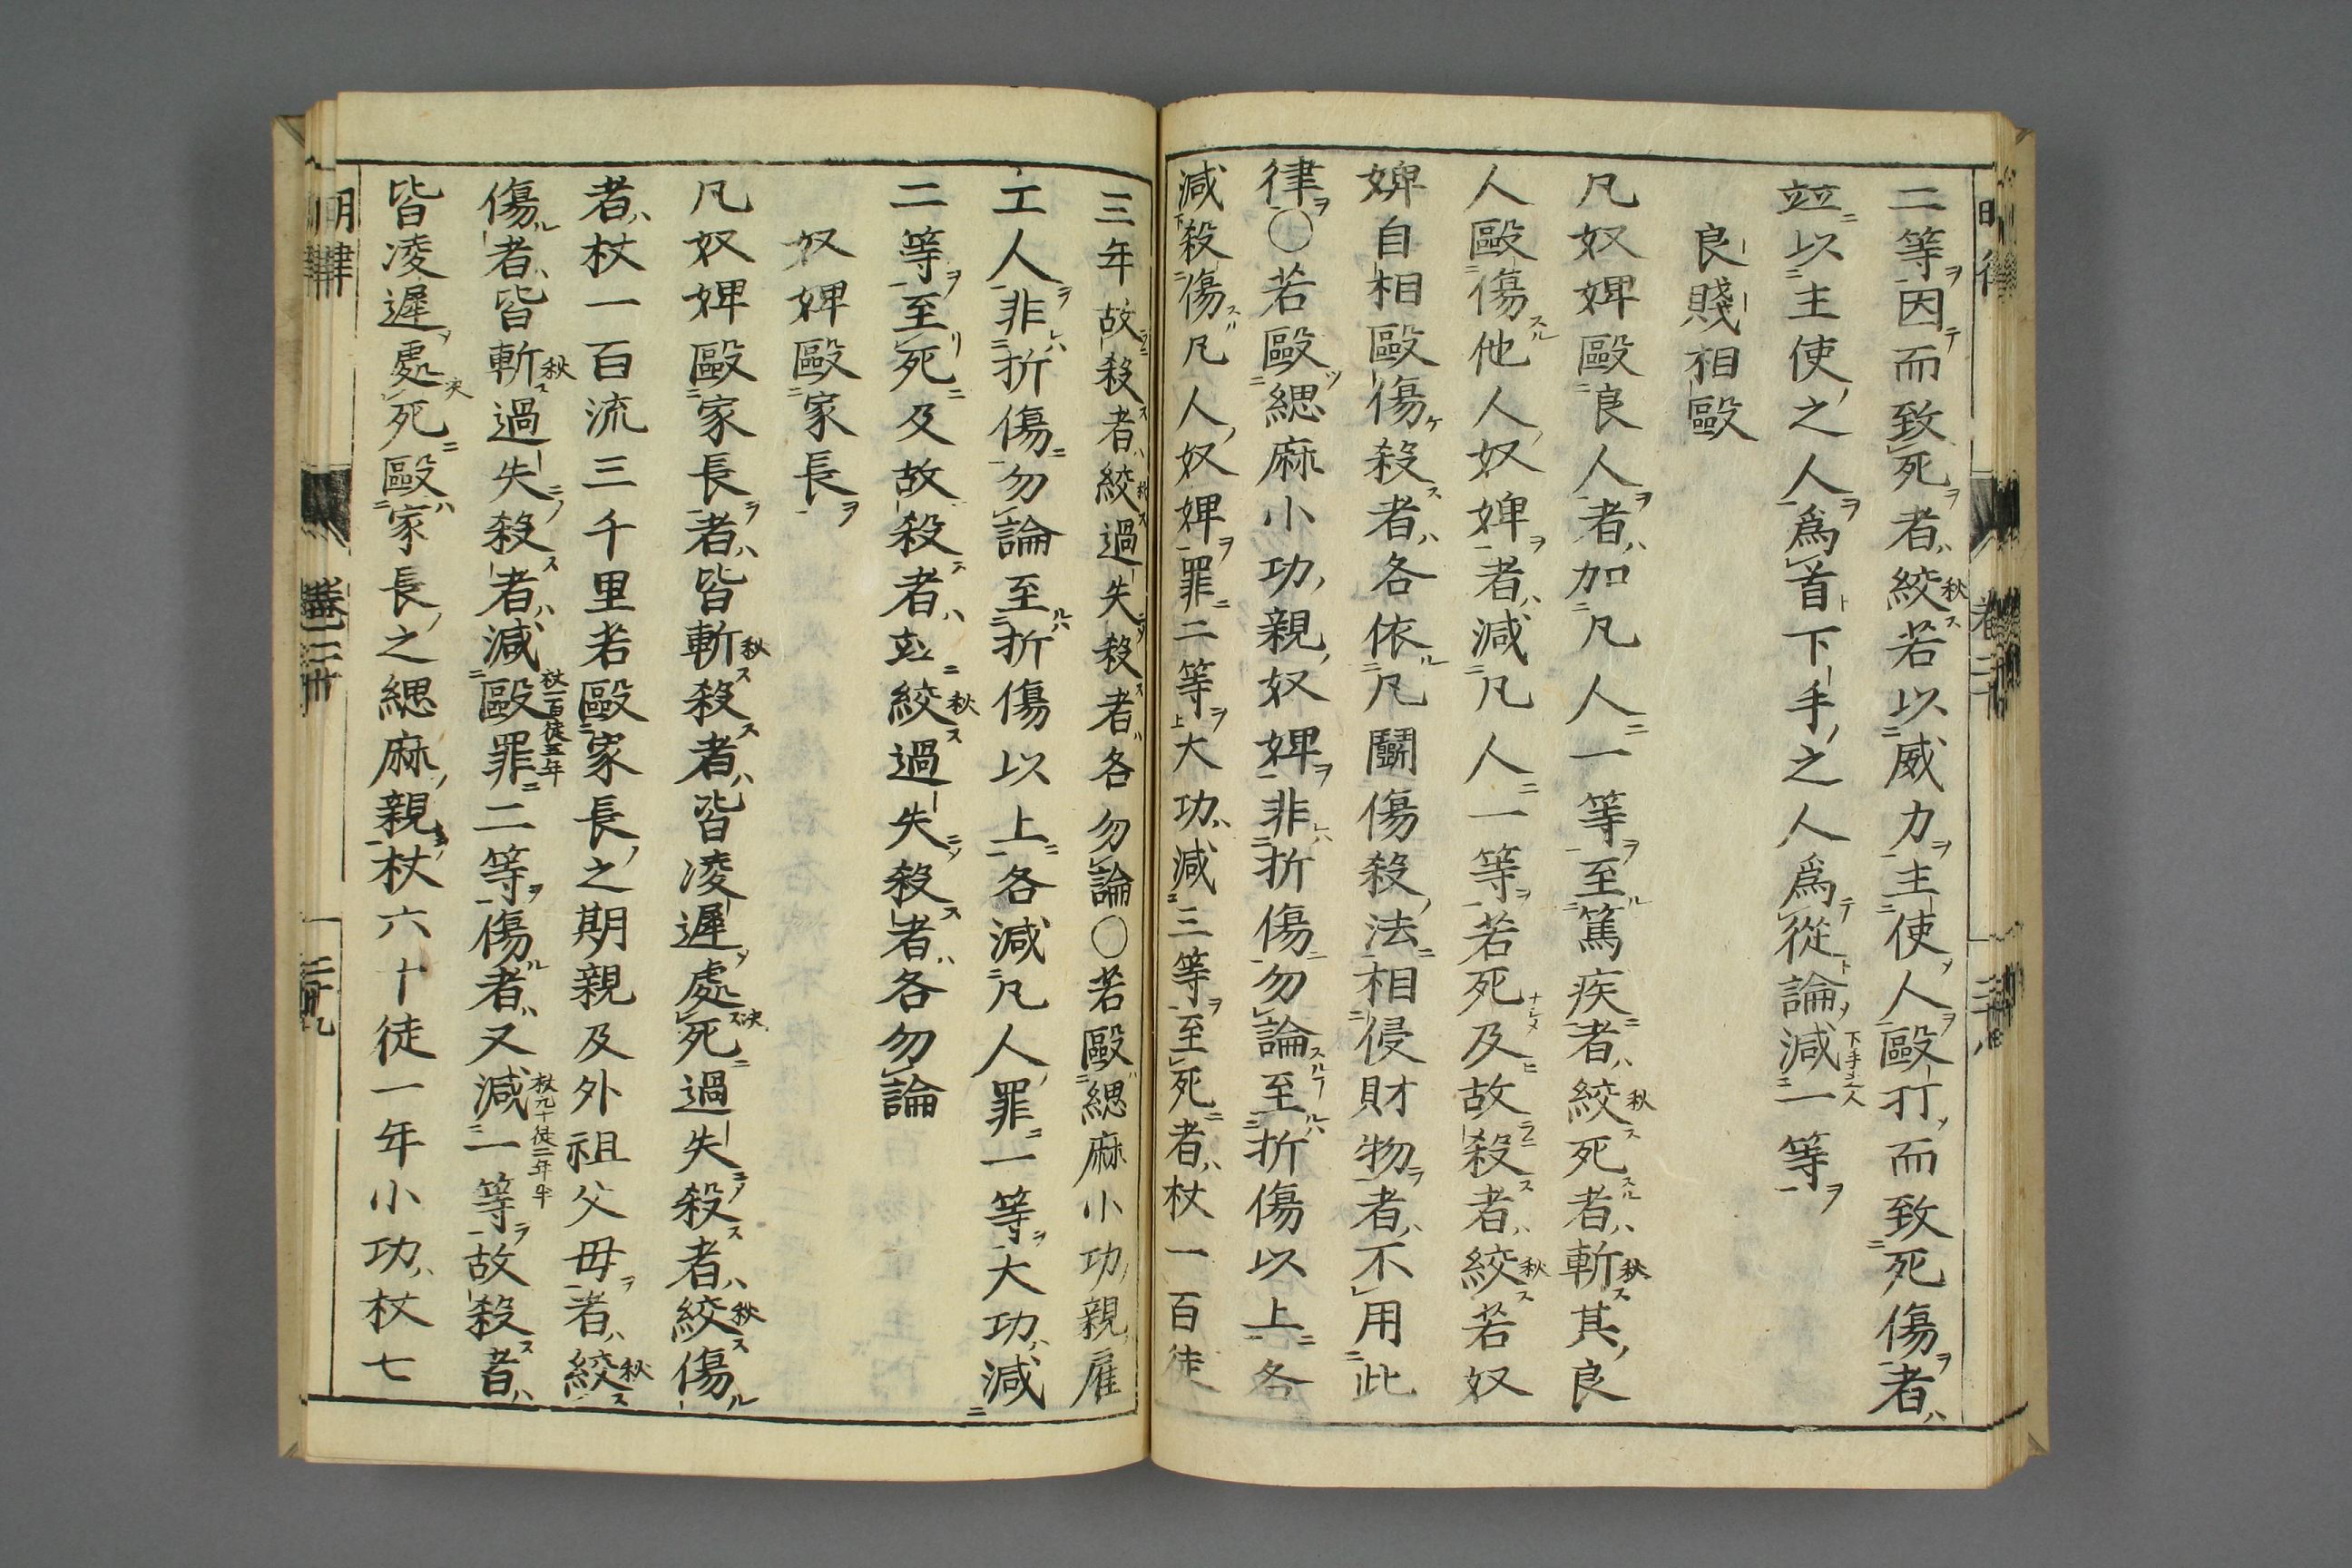 二等因而致死者絞若以威力主使人毆打而致死傷者
竝以主使之人爲首下手之人爲從論減一等
良賤相毆
凡奴婢毆良人者加凡人一等至篤疾者絞死者斬其良
人毆傷他人奴婢者減凡人一等若死及故殺者絞若奴
婢自相毆傷殺者各依凡鬭傷殺法相侵財物者不用此
律〇若毆緦麻小功親奴婢非折傷勿論至折傷以上各
減殺傷凡人奴婢罪二等大功減三等至死者杖一百徒
三年故殺者絞過失殺者各勿論〇若毆緦麻小功親雇
工人非折傷勿論至折傷以上各減凡人罪一等大功減
二等至死及故殺者竝絞過失殺者各勿論
奴婢毆家長
凡奴婢毆家長者皆斬殺者皆凌遲處死過失殺者絞傷
者杖一百流三千里若毆家長之期親及外祖父母者絞
傷者皆斬過失殺者減毆罪二等傷者又減一等故殺者
皆凌遲處死毆家長之緦麻親杖六十徒一年小功杖七
明律 卷二十 二十九